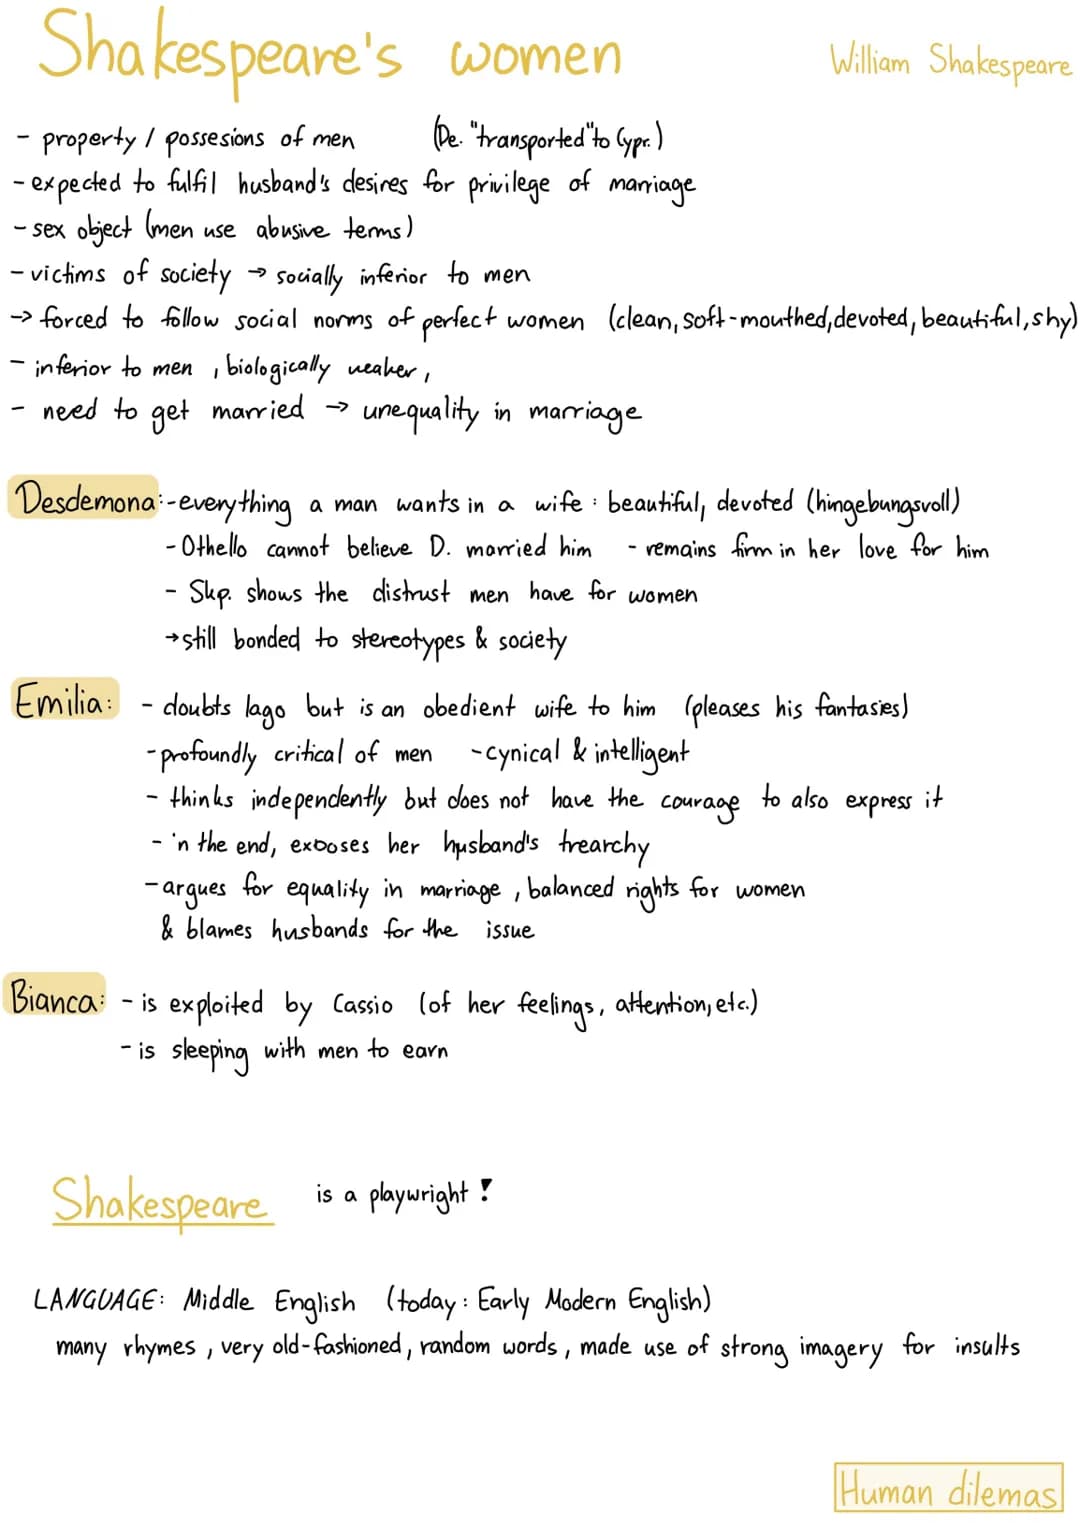 Shakespeare's women
William Shakespeare
- property / possesions of men (De. "transported" to Cypr.)
- expected to fulfil husband's desires for privilege of marriage
- sex object (men use abusive terms)
- victims of society → socially inferior to men
→ forced to follow social norms of perfect women (clean, soft-mouthed, devoted, beautiful, shy)
- inferior to men , biologically weaker ,
- need to get married → unequality in marriage
Desdemona: - everything a man wants in a wife : beautiful, devoted (hingebungsvoll)
- Othello cannot believe D. married him - remains firm in her love for him
- Skp. shows the distrust men have for women
→ still bonded to stereotypes & society
Emilia: - doubts Iago but is an obedient wife to him (pleases his fantasies)
- profoundly critical of men - cynical & intelligent
- thinks independently but does not have the courage to also express it
- 'n the end, exposes her husband's trearchy
- argues for equality in marriage , balanced rights for women
& blames husbands for the issue
Bianca: - is exploited by Cassio (of her feelings, attention, etc.)
- is sleeping with men to earn
Shakespeare is a playwright !
LANGUAGE: Middle English (today : Early Modern English)
many rhymes , very old-fashioned , random words , made use of strong imagery for insults
Human dilemas